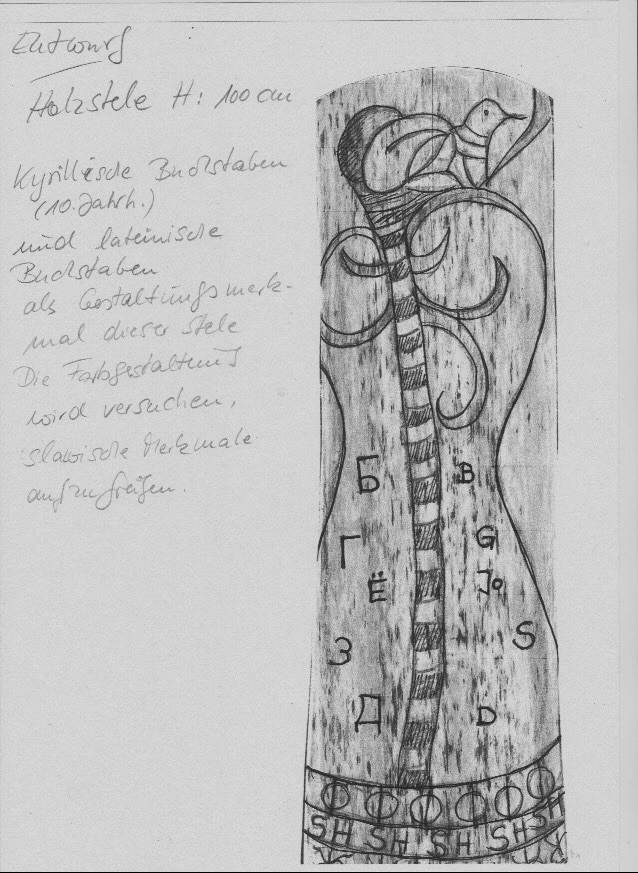 Entwurf
Holzstele H: 100 cm
Kyrillische Buchstaben
(10. Jahrh.)
und lateinische
Buchstaben
als Gestaltungsmerk-
mal dieser Stele
Die Farbgestaltung
wird versuchen,
slawische Merkmale
aufzugreifen.
Б B
Г G
Ё Jo
З S
Д D
SH SH SH SH SH